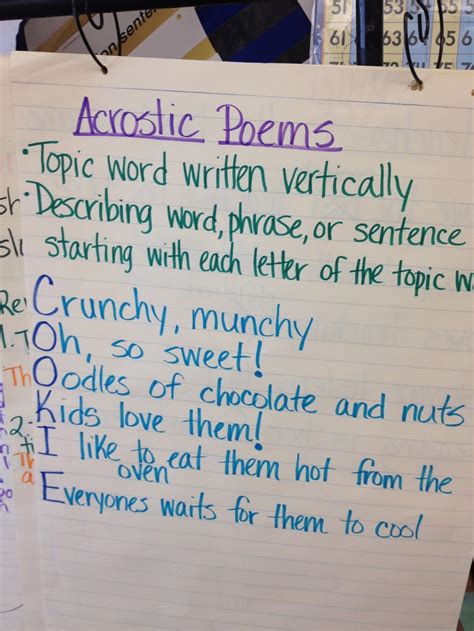 Acrostic Poems
• Topic word written vertically
• Describing word, phrase, or sentence
starting with each letter of the topic
Crunchy, munchy
Oh, so sweet!
Oodles of chocolate and nuts
Kids love them!
I like to eat them hot from the
oven
Everyones waits for them to cool